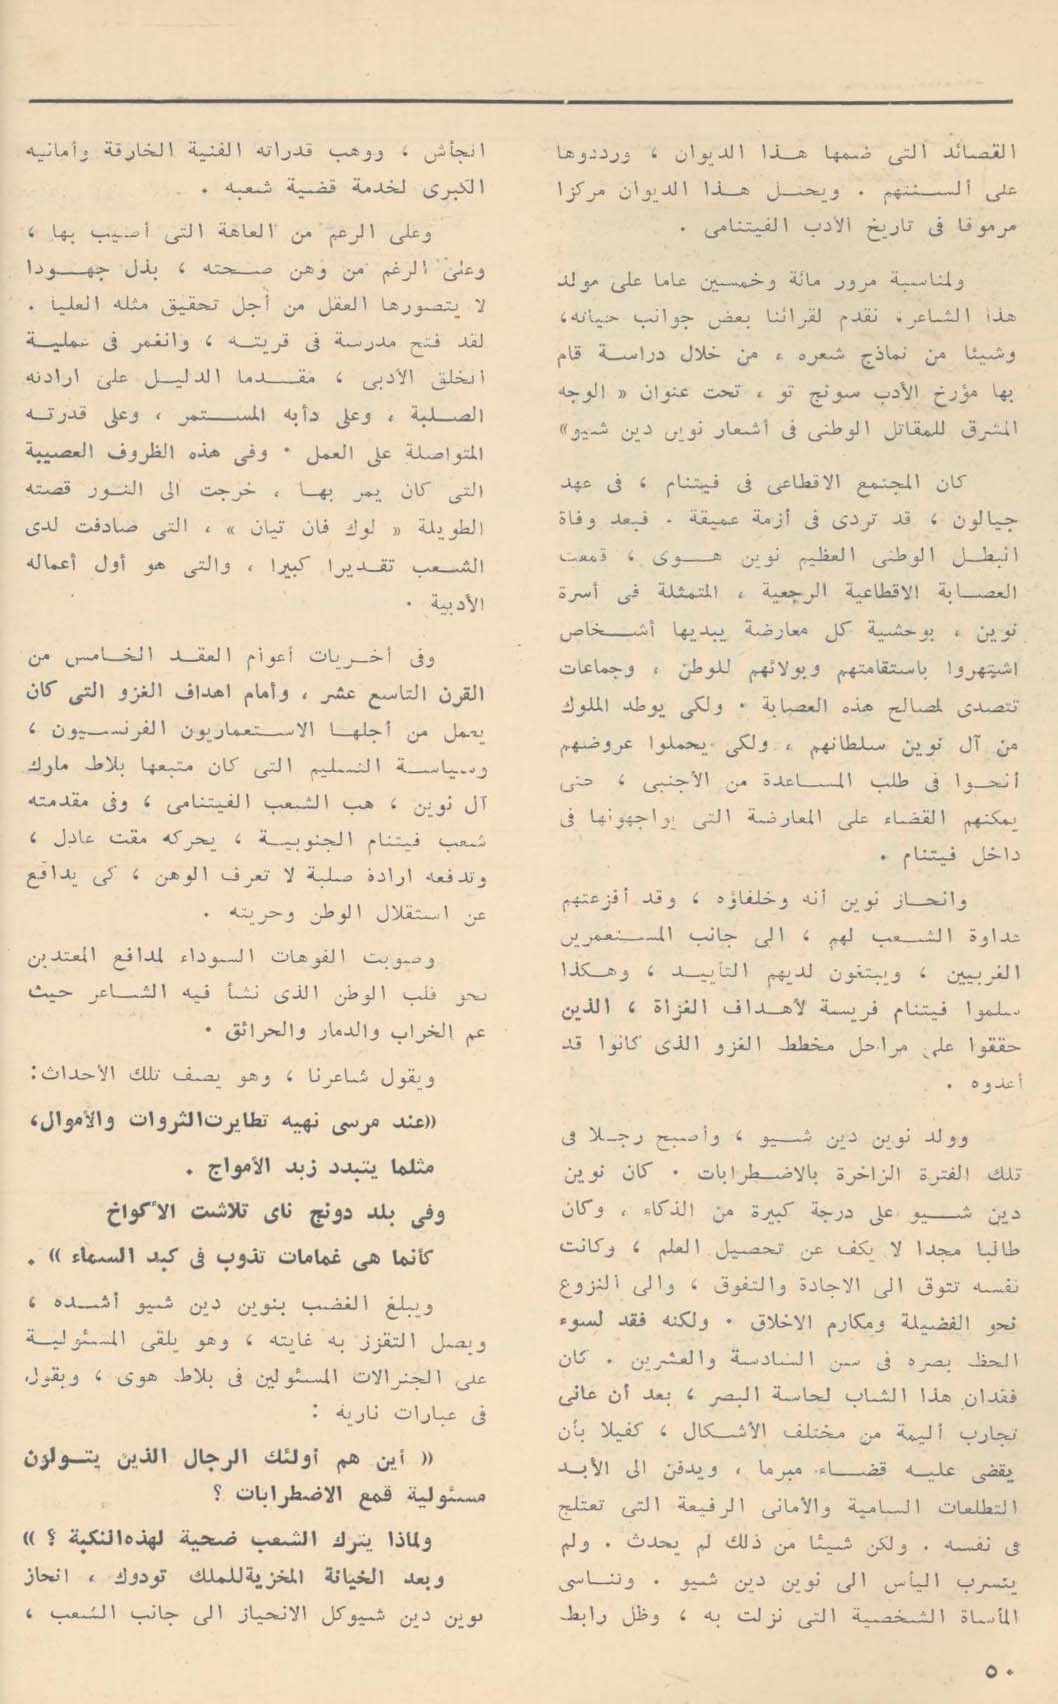 القصائد التى ضمها هذا الديوان ، ورددوها
على ألسنتهم . ويحتل هذا الديوان مركزا
مرموقا فى تاريخ الأدب الفيتنامى .
ولمناسبة مرور مائة وخمسين عاما على مولد
هذا الشاعر، نقدم لقرائنا بعض جوانب حياته،
وشيئا من نماذج شعره ، من خلال دراسة قام
بها مؤرخ الأدب سونج تو ، تحت عنوان « الوجه
المشرق للمقاتل الوطنى فى أشعار نوين دين شيو»
كان المجتمع الاقطاعى فى فيتنام ، فى عهد
جيالون ، قد تردى فى أزمة عميقة . فبعد وفاة
البطل الوطنى العظيم نوين هوى ، قمعت
العصابة الاقطاعية الرجعية ، المتمثلة فى أسرة
نوين ، بوحشية كل معارضة يبديها أشخاص
اشتهروا باستقامتهم وبولائهم للوطن ، وجماعات
تتصدى لمصالح هذه العصابة . ولكى يوطد الملوك
من آل نوين سلطانهم ، ولكى يحملوا عروضهم
ألحوا فى طلب المساعدة من الأجنبى ، حتى
يمكنهم القضاء على المعارضة التى يواجهونها فى
داخل فيتنام .
وانحاز نوين أنه وخلفاؤه ، وقد أفزعتهم
عداوة الشعب لهم ، الى جانب المستعمرين
الغربيين ، ويبتغون لديهم التأييد ، وهكذا
سلموا فيتنام فريسة لأهداف الغزاة ، الذين
حققوا على مراحل مخطط الغزو الذى كانوا قد
أعدوه .
وولد نوين دين شيو ، وأصبح رجلا فى
تلك الفترة الزاخرة بالاضطرابات . كان نوين
دين شيو على درجة كبيرة من الذكاء ، وكان
طالبا مجدا لا يكف عن تحصيل العلم ، وكانت
نفسه تتوق الى الاجادة والتفوق ، والى النزوع
نحو الفضيلة ومكارم الاخلاق . ولكنه فقد لسوء
الحظ بصره فى سن السادسة والعشرين . كان
فقدان هذا الشاب لحاسة البصر ، بعد أن عانى
تجارب أليمة من مختلف الأشكال ، كفيلا بأن
يقضى عليه قضاء مبرما ، ويدفن الى الأبد
التطلعات السامية والأمانى الرفيعة التى تعتلج
فى نفسه . ولكن شيئا من ذلك لم يحدث . ولم
يتسرب اليأس الى نوين دين شيو . وتناسى
المأساة الشخصية التى نزلت به ، وظل رابط
الجأش ، ووهب قدراته الفنية الخارقة وأمانيه
الكبرى لخدمة قضية شعبه .
وعلى الرغم من العاهة التى أصيب بها ،
وعلى الرغم من وهن صحته ، بذل جهودا
لا يتصورها العقل من أجل تحقيق مثله العليا .
لقد فتح مدرسة فى قريته ، وانغمر فى عملية
الخلق الأدبى ، مقدما الدليل على ارادته
الصلبة ، وعلى دأبه المستمر ، وعلى قدرته
المتواصلة على العمل . وفى هذه الظروف العصيبة
التى كان يمر بها ، خرجت الى النور قصته
الطويلة « لوك فان تيان » ، التى صادفت لدى
الشعب تقديرا كبيرا ، والتى هو أول أعماله
الأدبية .
وفى أخريات أعوام العقد الخامس من
القرن التاسع عشر ، وأمام اهداف الغزو التى كان
يعمل من أجلها الاستعماريون الفرنسيون ،
وسياسة التسليم التى كان متبعها بلاط مارك
آل نوين ، هب الشعب الفيتنامى ، وفى مقدمته
شعب فيتنام الجنوبية ، يحركه مقت عادل ،
وتدفعه ارادة صلبة لا تعرف الوهن ، كى يدافع
عن استقلال الوطن وحريته .
وصوبت الفوهات السوداء لمدافع المعتدين
نحو قلب الوطن الذى نشأ فيه الشاعر حيث
عم الخراب والدمار والحرائق .
ويقول شاعرنا ، وهو يصف تلك الأحداث:
«عند مرسى نهيه تطايرت الثروات والأموال،
مثلما يتبدد زبد الأمواج .
وفى بلد دونج ناى تلاشت الأكواخ
كأنما هى غمامات تذوب فى كبد السماء » .
ويبلغ الغضب بنوين دين شيو أشده ،
ويصل التقزز به غايته ، وهو يلقى المسئولية
على الجنرالات المسئولين فى بلاط هوى ، ويقول
فى عبارات نارية :
« أين هم أولئك الرجال الذين يتولون
مسئولية قمع الاضطرابات ؟
ولماذا يترك الشعب ضحية لهذه النكبة ؟ »
وبعد الخيانة المخزية للملك تودوك ، انحاز
نوين دين شيوكل الانحياز الى جانب الشعب ،
٥٠